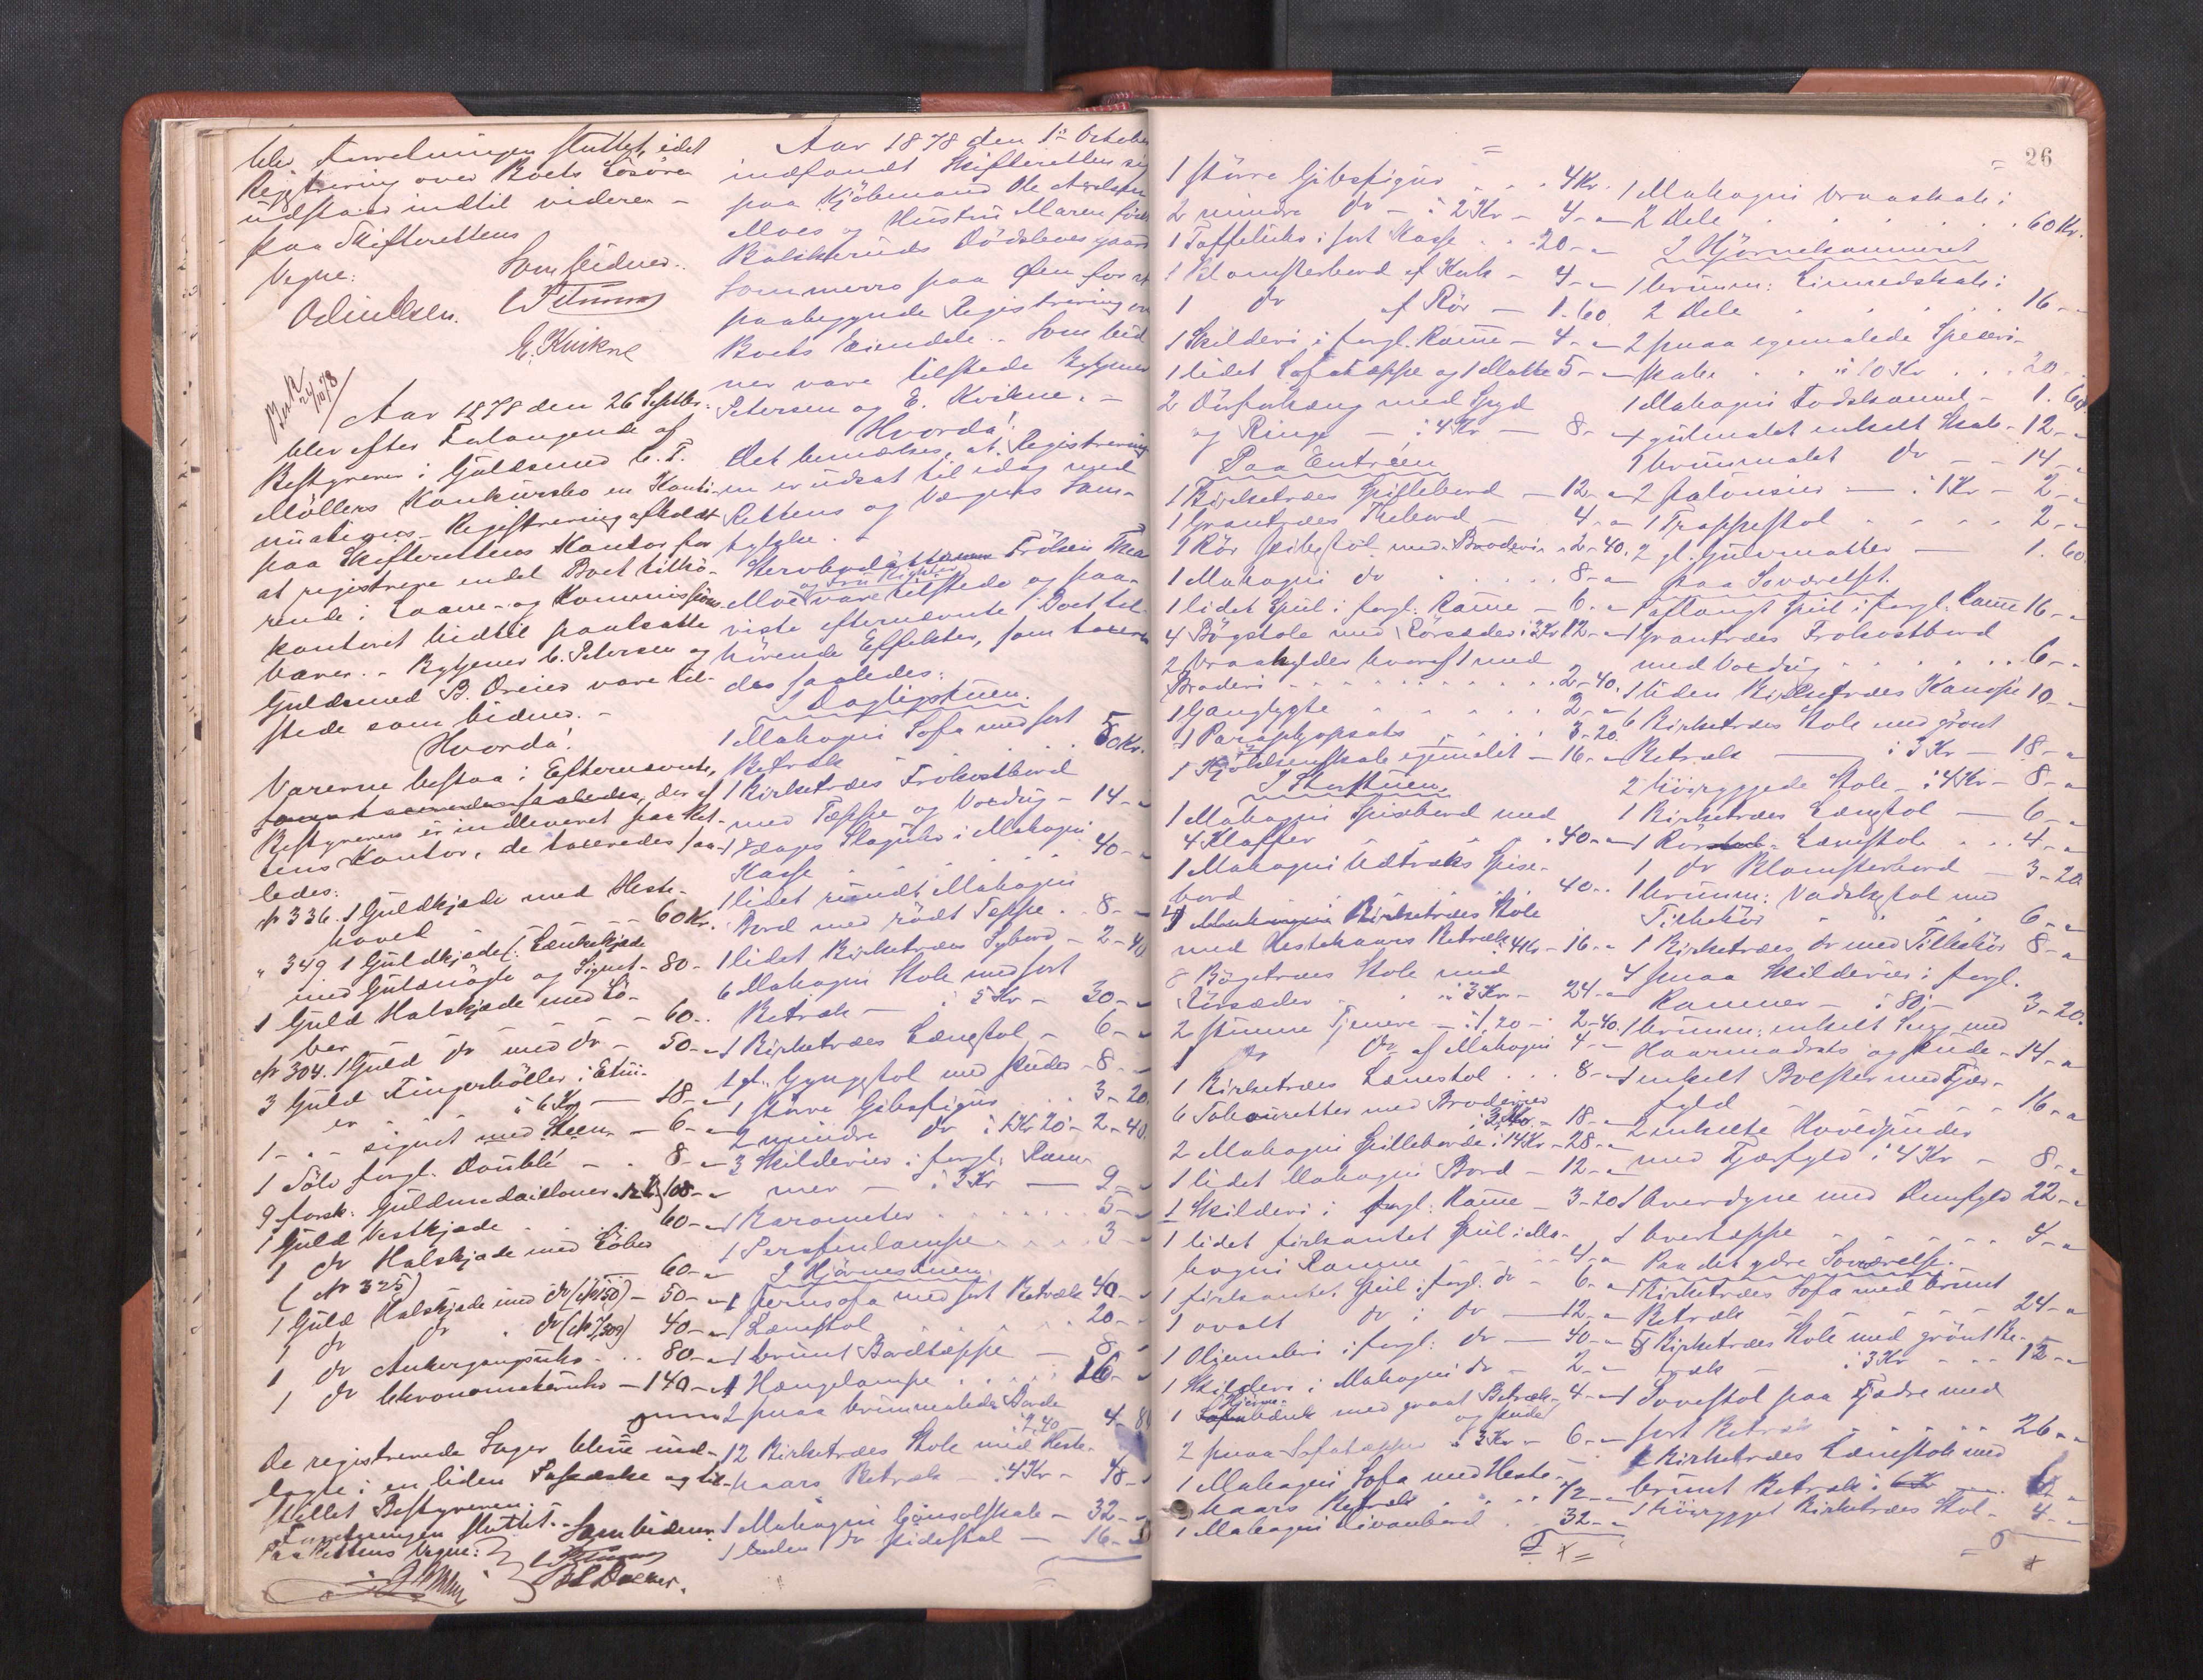 blev Forretningen sluttet, idet
Registrering over Boets Løsøre
udstaar indtil videre. —
paa Skifterettens
Vegne: Som Vidner:
E. Kvikne
Aar 1878 den 26 Septbr.
blev efter Forlangende af
Bestyreren i Guldsmed C. F.
Möllers Konkursbo en Konti-
nuations-Registrering afholdt
paa Skifterettens Kontor for
at registrere endel Boet tilhö-
rende i Laane- og Kommissions-
kontoret hidtil pantsatte
Varer. — Bytjener C. Petersen og
Guldsmed B. Dreier vare til-
stede som Vidner. —
Hvorda!
Varerne bestaa i Efternævnte,
der af
Bestyreren er indleveret paa Ret-
tens Kontor, de taxeredes saa-
ledes:
№ 336. 1 Guldkjæde med Heste-
hoved — 60 Kr.
" 349 1 Guldkjæde (: Lænkekjæde
med Guldnøgle og Signet - 80 -
1 Guld Halskjæde med Lö-
ber — 60 -
№ 304. 1 Guld do med do - 50 -
3 Guld Fingerbøller i Etui-
er à 6 Kr — 18 -
1 - " - signet med Steen — 6 -
1 Sölv forgl. Doublé — 8 -
9 forsk: Guldmedailloner à 12 Kr 108 -
1 Guld Vestkjæde 60 -
1 do Halskjæde med Löber
(№ 325) — 60 -
1 Guld Halskjæde med do (№ 150) - 50 -
1 do do " do 40 -
1 do Ankergangsuhr 80 -
1 do Chronometeruhr — 140 -
De registrerede Sager bleve ind-
lagte i en liden Papæske og til-
stillet Bestyreren.
Forretningen sluttet. Som Vidner:
Paa Rettens Vegne:
Aar 1878 den 1ste October
indfandt Skifteretten sig
paa Kjöbmand Ole
Moes og Hustru Maren födt
Balchkeruds Dödsboes gaard
Sommerro paa Øen for at
paabegynde Registrering over
Boets Eiendele. — Som Vid-
ner vare tilstede Bytjener
Petersen og E. Kvikne. —
Hvorda!
Det bemærkes, at Registrering-
en er udsat til idag med
Rettens og Værgens Sam-
tykke. —
Stervbodatter Fröken Thea
og Fru Richter
Moe vare tilstede og paa-
viste efternævnte Boet til-
hörende Effekter, som taxere-
des saaledes:
I Dagligstuen.
1 Mahogni Sofa med sort
Betræk 50 Kr.
1 Birketræes Frokostbord
med Tæppe og Voxdug - 14 -
1 8 Dages Slaguhr i Mahogni
Kasse 40 -
1 lidet rundt Mahogni
Bord med rödt Tæppe 8 -
1 lidet Birketræes Sybord - 2 - 40
6 Mahogni Stole med sort
Betræk — à 5 Kr - 30 -
1 Birketræes Lænestol - 6 -
1 gl. Gyngestol med Pude - 8 -
1 större Gibsfigur 3 - 20.
2 mindre do à 1 Kr 20 - 2 - 40.
3 Skilderier i forgl. Ram-
mer — à 3 Kr — 9 -
1 Barometer 5 -
1 Parafinlampe 3 -
I Hjörnestuen.
1 Fernsofa med sort Betræk 40 -
1 Lænestol 20 -
1 brunt Bordtæppe — 8 -
1 Hængelampe 16 -
2 smaa brunmalede Borde
à 2,40 - 4 - 80
12 Birketræes Stole med Heste-
haars Betræk — à 4 Kr - 48 -
1 Mahogni Consolskab — 32 -
1 liden do Pidestal — 16 -
26
1 större Gibsfigur 4 Kr.
2 mindre do — à 2 Kr - 4 -
1 Taffeluhr i sort Kasse 20 -
1 Blomsterbord af Kurv - 4 -
1 do af Rör — 1 - 60.
1 Skilderi i forgl. Ramme - 4 -
1 lidet Sofatæppe og 1 Matte 5 -
2 Dörforhæng med Spyd
og Ringe — à 4 Kr — 8 -
Paa Entréen
1 Birketræes Spillebord — 12 -
1 Grantræes Thebord — 4 -
1 Rör med Broderi 2 - 40.
1 Mahogni do 8 -
1 lidet Speil i forgl. Ramme - 6 -
4 Bögstole med Rörsæder à 3 Kr 12 -
2 Vraahylder hvoraf 1 med
Broderi 2 - 40.
1 Ganglygte 2 -
1 Paraplyopsats 3 - 20.
1 Kjökkenskab egemalet - 16 -
I Storstuen
1 Mahogni Spisebord med
4 Klaffer 40 -
1 Mahogni Udtræks Spise-
bord 40 -
4 Birketræes Stole
med Hestehaars Betræk à 4 Kr - 16 -
8 Bögetræes Stole med
Rörsæder à 3 Kr - 24 -
2 stumme Tjenere — à 1,20 - 2 - 40.
1 do do af Mahogni 4 -
1 Birketræes Lænestol 8 -
6 Tabouretter med Broderier
à 3 Kr - 18 -
2 Mahogni Spilleborde à 14 Kr - 28 -
1 lidet Mahogni Bord - 12 -
1 Skilderi i forgl: Ramme - 3 - 20
1 lidet firkantet Speil i Ma-
hogni Ramme 4 -
1 firkantet Speil i forgl. do - 6 -
1 ovalt do i do — 12 -
1 Oljemaleri i forgl: do — 40 -
1 Skilderi i Mahogni do — 2 -
1 Hjörnebænk med graat Betræk - 4 -
og Pude
2 smaa Sofatæpper à 3 Kr - 6 -
1 Mahogni Sofa med Heste-
haars Betræk 72 -
1 Mahogni Divanbord 32 -
1 Mahogni Vraaskab i
2 Dele 60 Kr.
I Hjörnekammeret
1 brunm: Linnedskab i
2 Dele 16 -
2 smaa egemalede Speceri-
skabe à 10 Kr 20 -
1 Mahogni Fodskammel - 1. 60.
1 gulmalet enkelt Skab - 12 -
1 brunmalet do - 14 -
2 Jalousier — à 1 Kr - 2 -
1 Trappestol 2 -
2 gl. Gulvmatter — 1. 60
paa Soværelset.
1 aflangt Speil i forgl. Ramme 16 -
1 Grantræes Frokostbord
med Voxdug 6 -
1 liden Birketræes Kanapé 10 -
6 Birketræes Stole med grönt
Betræk — à 3 Kr — 18 -
2 höiryggede Stole - à 4 Kr - 8 -
1 Birketræes Længstol — 6 -
1 Rör Lænestol 4 -
1 do Blomsterbord — 3 - 20
1 brunm: Vadskestol med
Tilbehör 6 -
1 Birketræes do med Tilbehör 8 -
4 smaa Skilderier i forgl.
Rammer — à 80 — 3 - 20.
1 brunm: enkelt Seng med
Haarmadrats og Pude - 14 -
1 enkelt Bolster med Fjær-
fyld 16 -
2 enkelte Hovedpuder
med Fjærfyld à 4 Kr - 8 -
1 Overdyne med Dunfyld 22 -
1 Overtæppe 4 -
Paa det ydre Soværelse.
1 Birketræes Sofa med brunt
Betræk 24 -
5 Birketræes Stole med grönt Be-
træk - à 3 Kr 15 -
1 Sovestol paa Fjædre med
sort Betræk 26 -
1 Birketræes Lænestol med
brunt Betræk 6 -
1 höirygget Birketræes Stol - 4 -